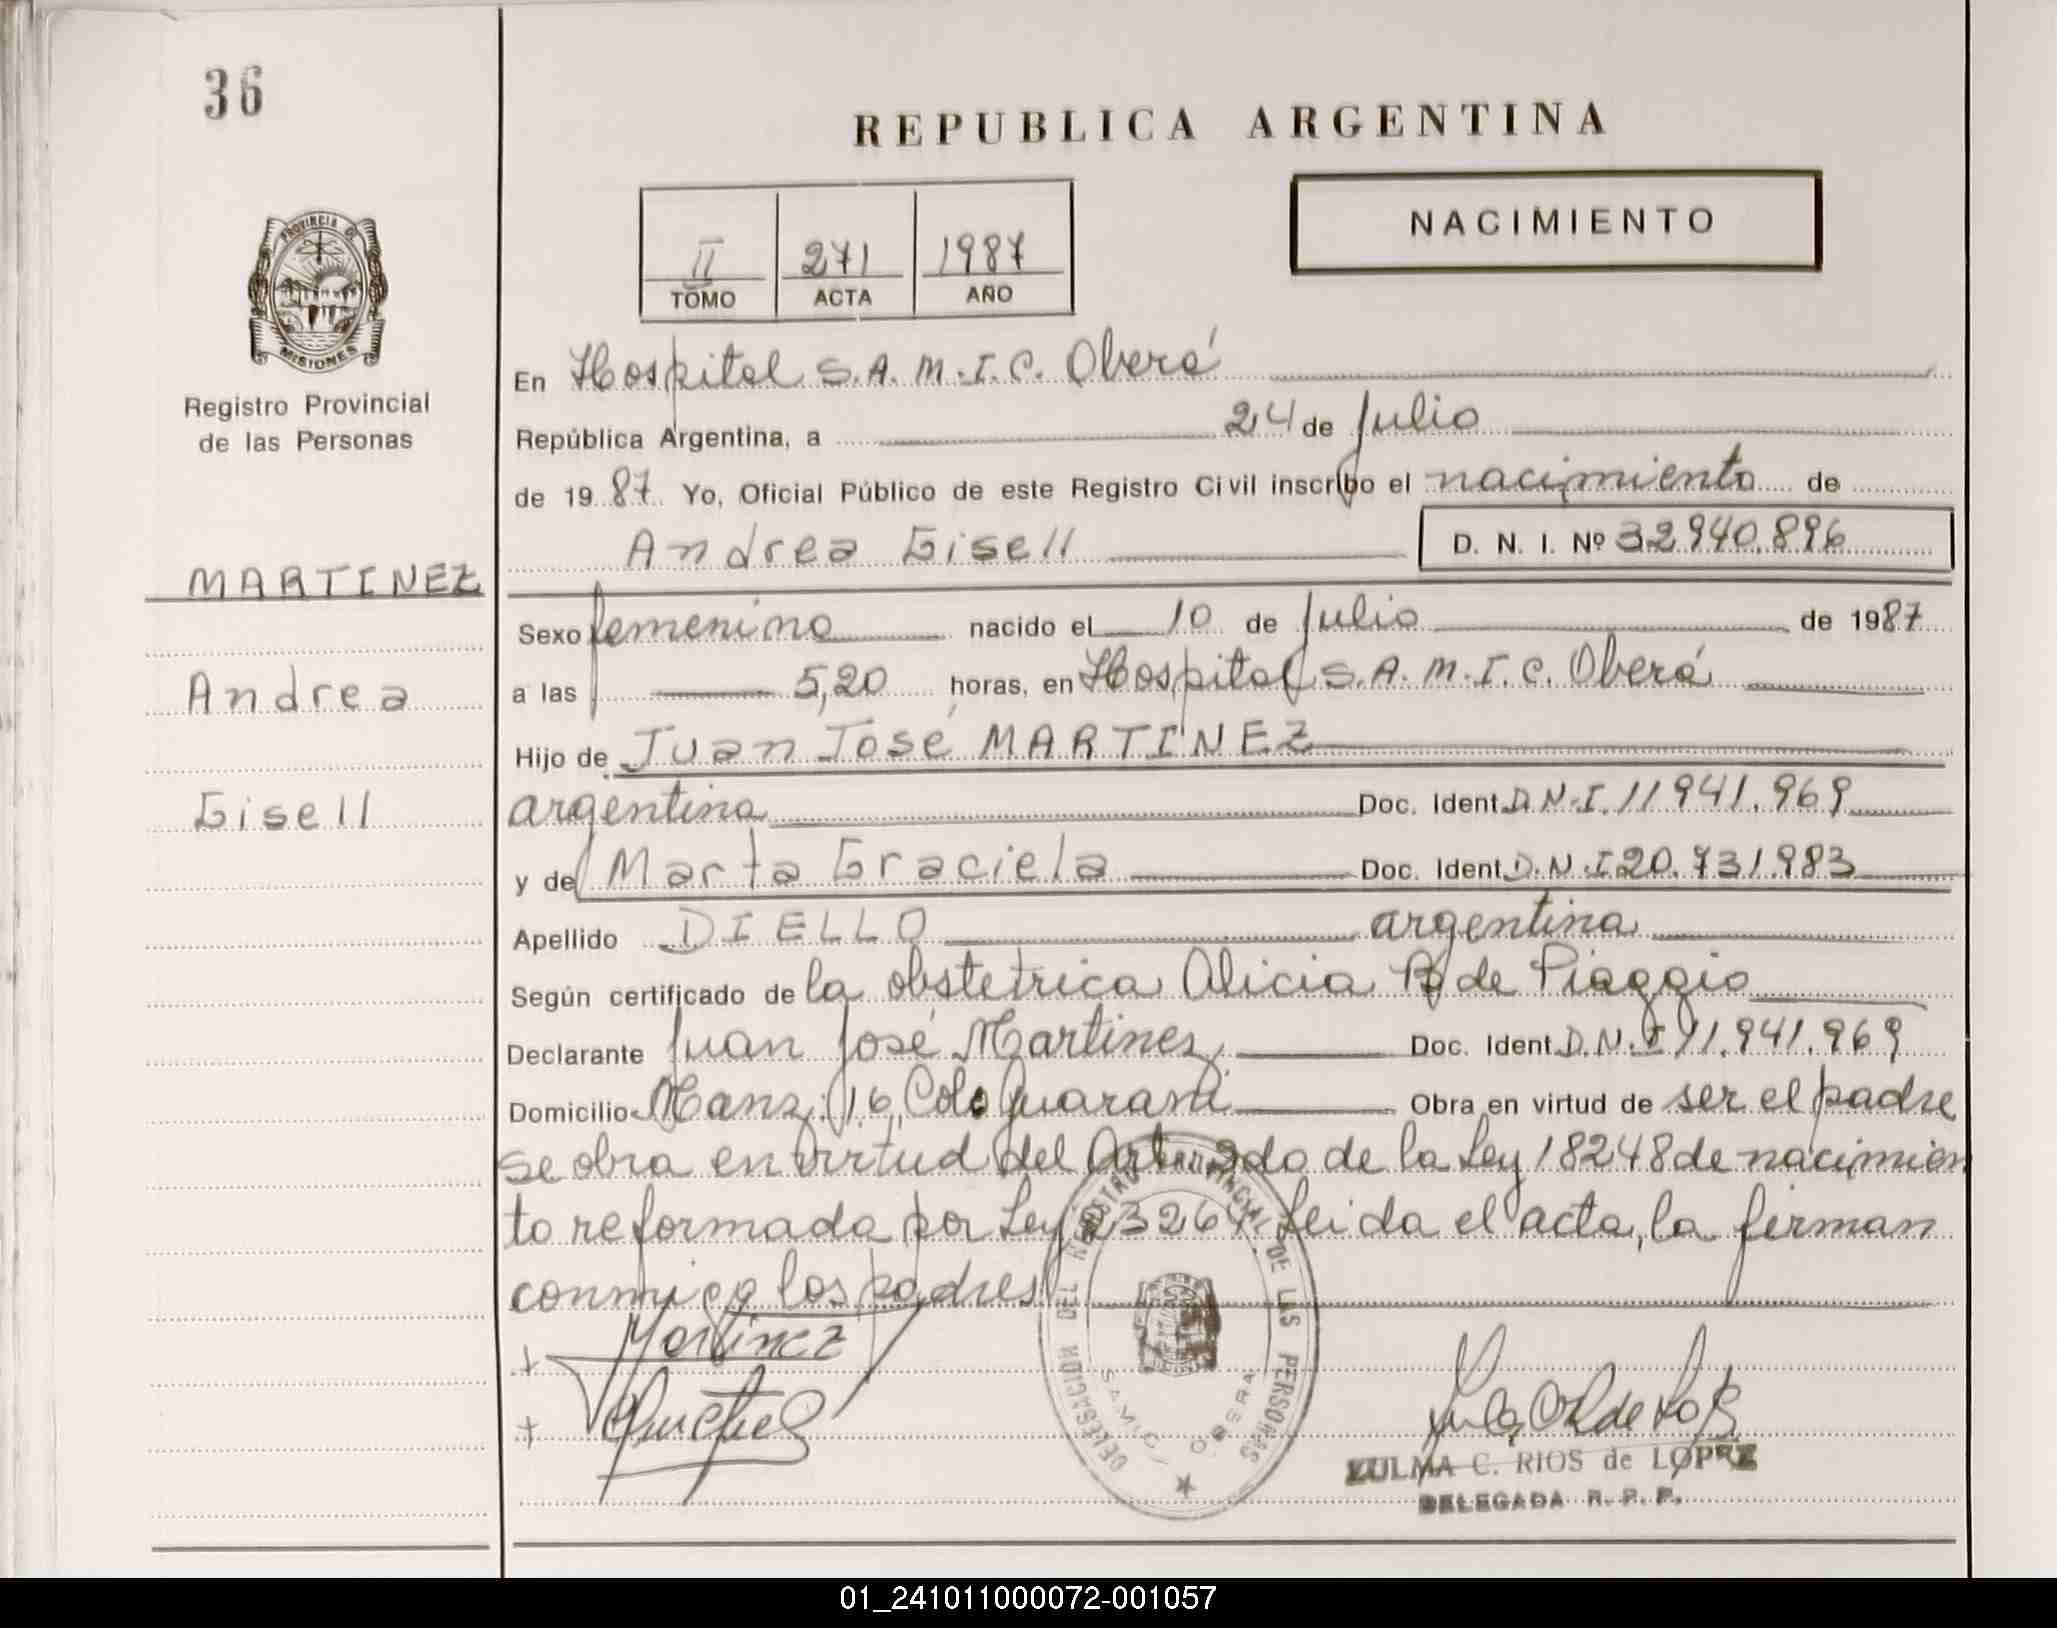 36
REPUBLICA ARGENTINA
NACIMIENTO
II 271 1987
TOMO ACTA AÑO
PROVINCIA DE
MISIONES
Registro Provincial
de las Personas
MARTINEZ
Andrea
Gisell
En Hospital S.A.M.I.C. Oberá
República Argentina, a 24 de Julio
de 1987. Yo, Oficial Público de este Registro Civil inscribo el nacimiento de
Andrea Gisell D. N. I. Nº 32.940.896
Sexo femenino nacido el 10 de Julio de 1987
a las 5,20 horas, en Hospital S.A.M.I.C. Oberá
Hijo de Juan José MARTINEZ
argentina Doc. Ident. D.N.I. 11.941.969
y de Marta Graciela Doc. Ident. D.N.I 20.731.983
Apellido DIELLO argentina
Según certificado de la obstetrica Alicia de Piaggio
Declarante Juan José Martinez Doc. Ident. D.N.I 11.941.969
Domicilio Manz. 16, Col. Guaraní Obra en virtud de ser el padre
se obra en virtud del Art. 2do de la Ley 18248 de nacimien
to reformada por Ley 23264. Leida el acta, la firman
conmigo los padres
Martinez
DELEGACION DEL REGISTRO PROVINCIAL DE LAS PERSONAS
SAMIC OBERA
ZULMA C. RIOS de LOPEZ
DELEGADA R. P. P.
01_241011000072-001057